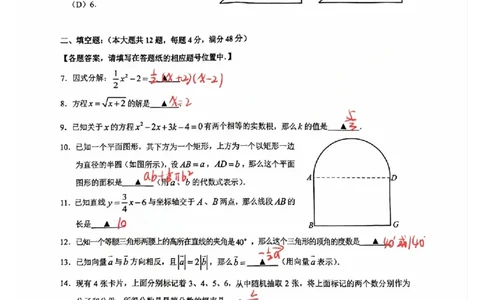 （D）6.
二、填空题：（本大题共12题，每题4分，满分48分）
【各题答案，请填写在答题纸的相应题号位置中.】
7．因式分解：1/2 x²－2＝ ▲ 1/2(x+2)(x-2)
8．方程 x＝√x＋2 的解是 ▲ x=2
9．已知关于x的方程x²－2x＋3k－4＝0有两个相等的实数根，那么k的值是 ▲ . 5/3
10．已知一个平面图形，其下方为一个矩形，上方为一个以矩形一边
为直径的半圆（如图所示），设AB＝a，AD＝b，那么这个平面
图形的面积是 ▲ （用a、b的代数式表示）.
A
D
11．已知直线 y＝3/4 x－6与坐标轴交于A、B两点，那么线段AB的
长是 ▲ 10
B
G
12．已知一个等腰三角形两腰上的高所在直线的夹角是40°，那么这个三角形的顶角的度数是 ▲ 40°或140°
13．已知向量a与b方向相反，且|a|＝2|b|，那么b＝ ▲ （用向量a表示）. -1/2 a
14．现有4张卡片，上面分别标记着3、4、5、6，从中随机抽取2张，将上面标记的两个数分别作为